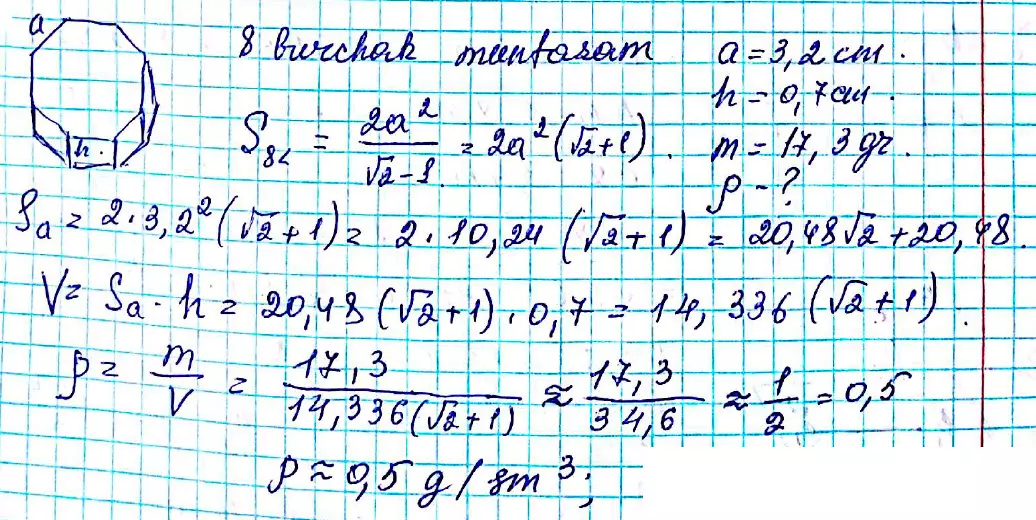 a
h.
8 burchak muntazam a = 3,2 cm.
h = 0,7 cm.
S₈< = 2a²/(√2-1) = 2a²(√2+1). m = 17,3 gr.
ρ - ?
Sa = 2·3,2²(√2+1) = 2·10,24 (√2+1) = 20,48√2+20,48.
V = Sa·h = 20,48(√2+1)·0,7 = 14,336(√2+1).
ρ = m/V = 17,3/(14,336(√2+1)) ≈ 17,3/34,6 ≈ 1/2 = 0,5
ρ ≈ 0,5 g/sm³;